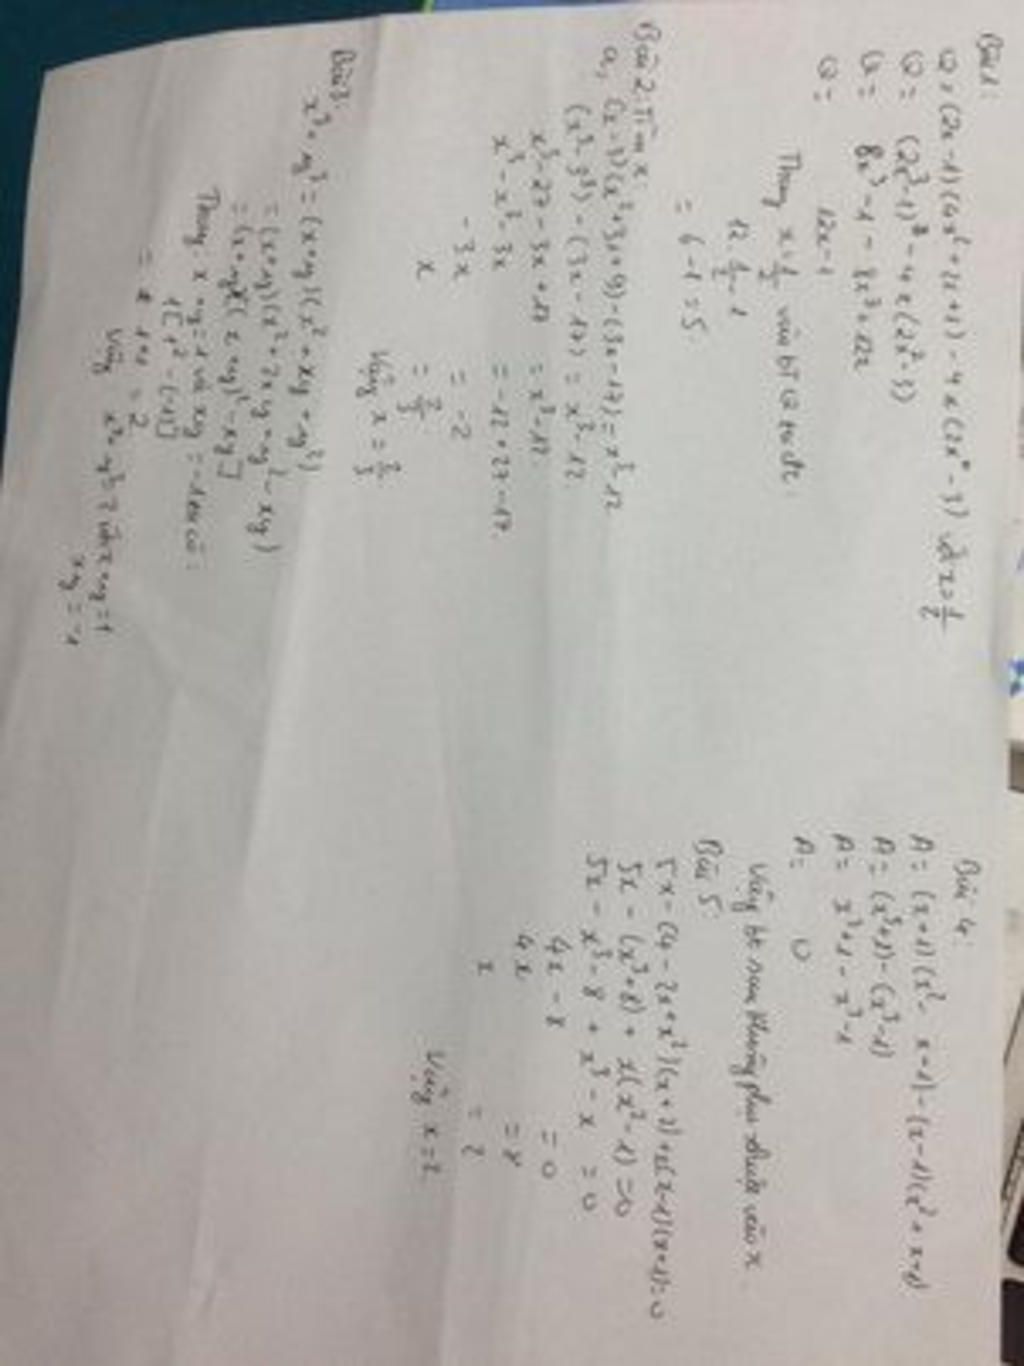 Bài 1:
Q = (2x-1)(4x²+2x+1) - 4x(2x²-3) với x = 1/2
Q = (2x³-1)³ - 4x(2x²-3)
Q = 8x³-1 - 8x³+12x
Q = 12x-1
Thay x = 1/2 vào bt Q ta đc:
12 1/2 - 1
= 6-1 = 5.
Bài 2: Tìm x
a, (x-3)(x²+3x+9)-(3x-17) = x³-12
(x³-3³) - (3x-17) = x³-12
x³-27-3x+17 = x³-12.
x³-x³-3x = -12+27-17.
-3x = -2
x = 2/3
Vậy x = 2/3
Bài 3.
x³+y³ = (x+y)(x²-xy+y²)
= (x+y)(x²+2xy+y²-xy)
= (x+y)[(x+y)²-xy]
Thay: x+y = 1 và xy = -1 ta có:
1[1²-(-1)]
= 1+1 = 2
Vậy x³+y³ = 2 với x+y=1
xy = -1
Bài 4:
A = (x+1)(x²-x+1)-(x-1)(x²+x+1)
A = (x³+1)-(x³-1)
A = x³+1-x³-1
A = 0
Vậy bt sau không phụ thuộc vào x.
Bài 5:
5x-(4-2x+x²)(x+2)+x(x-1)(x+1)=0
5x-(x³+8)+x(x²-1)=0
5x-x³-8+x³-x = 0
4x-8 = 0
4x = 8
x = 2
Vậy x = 2.